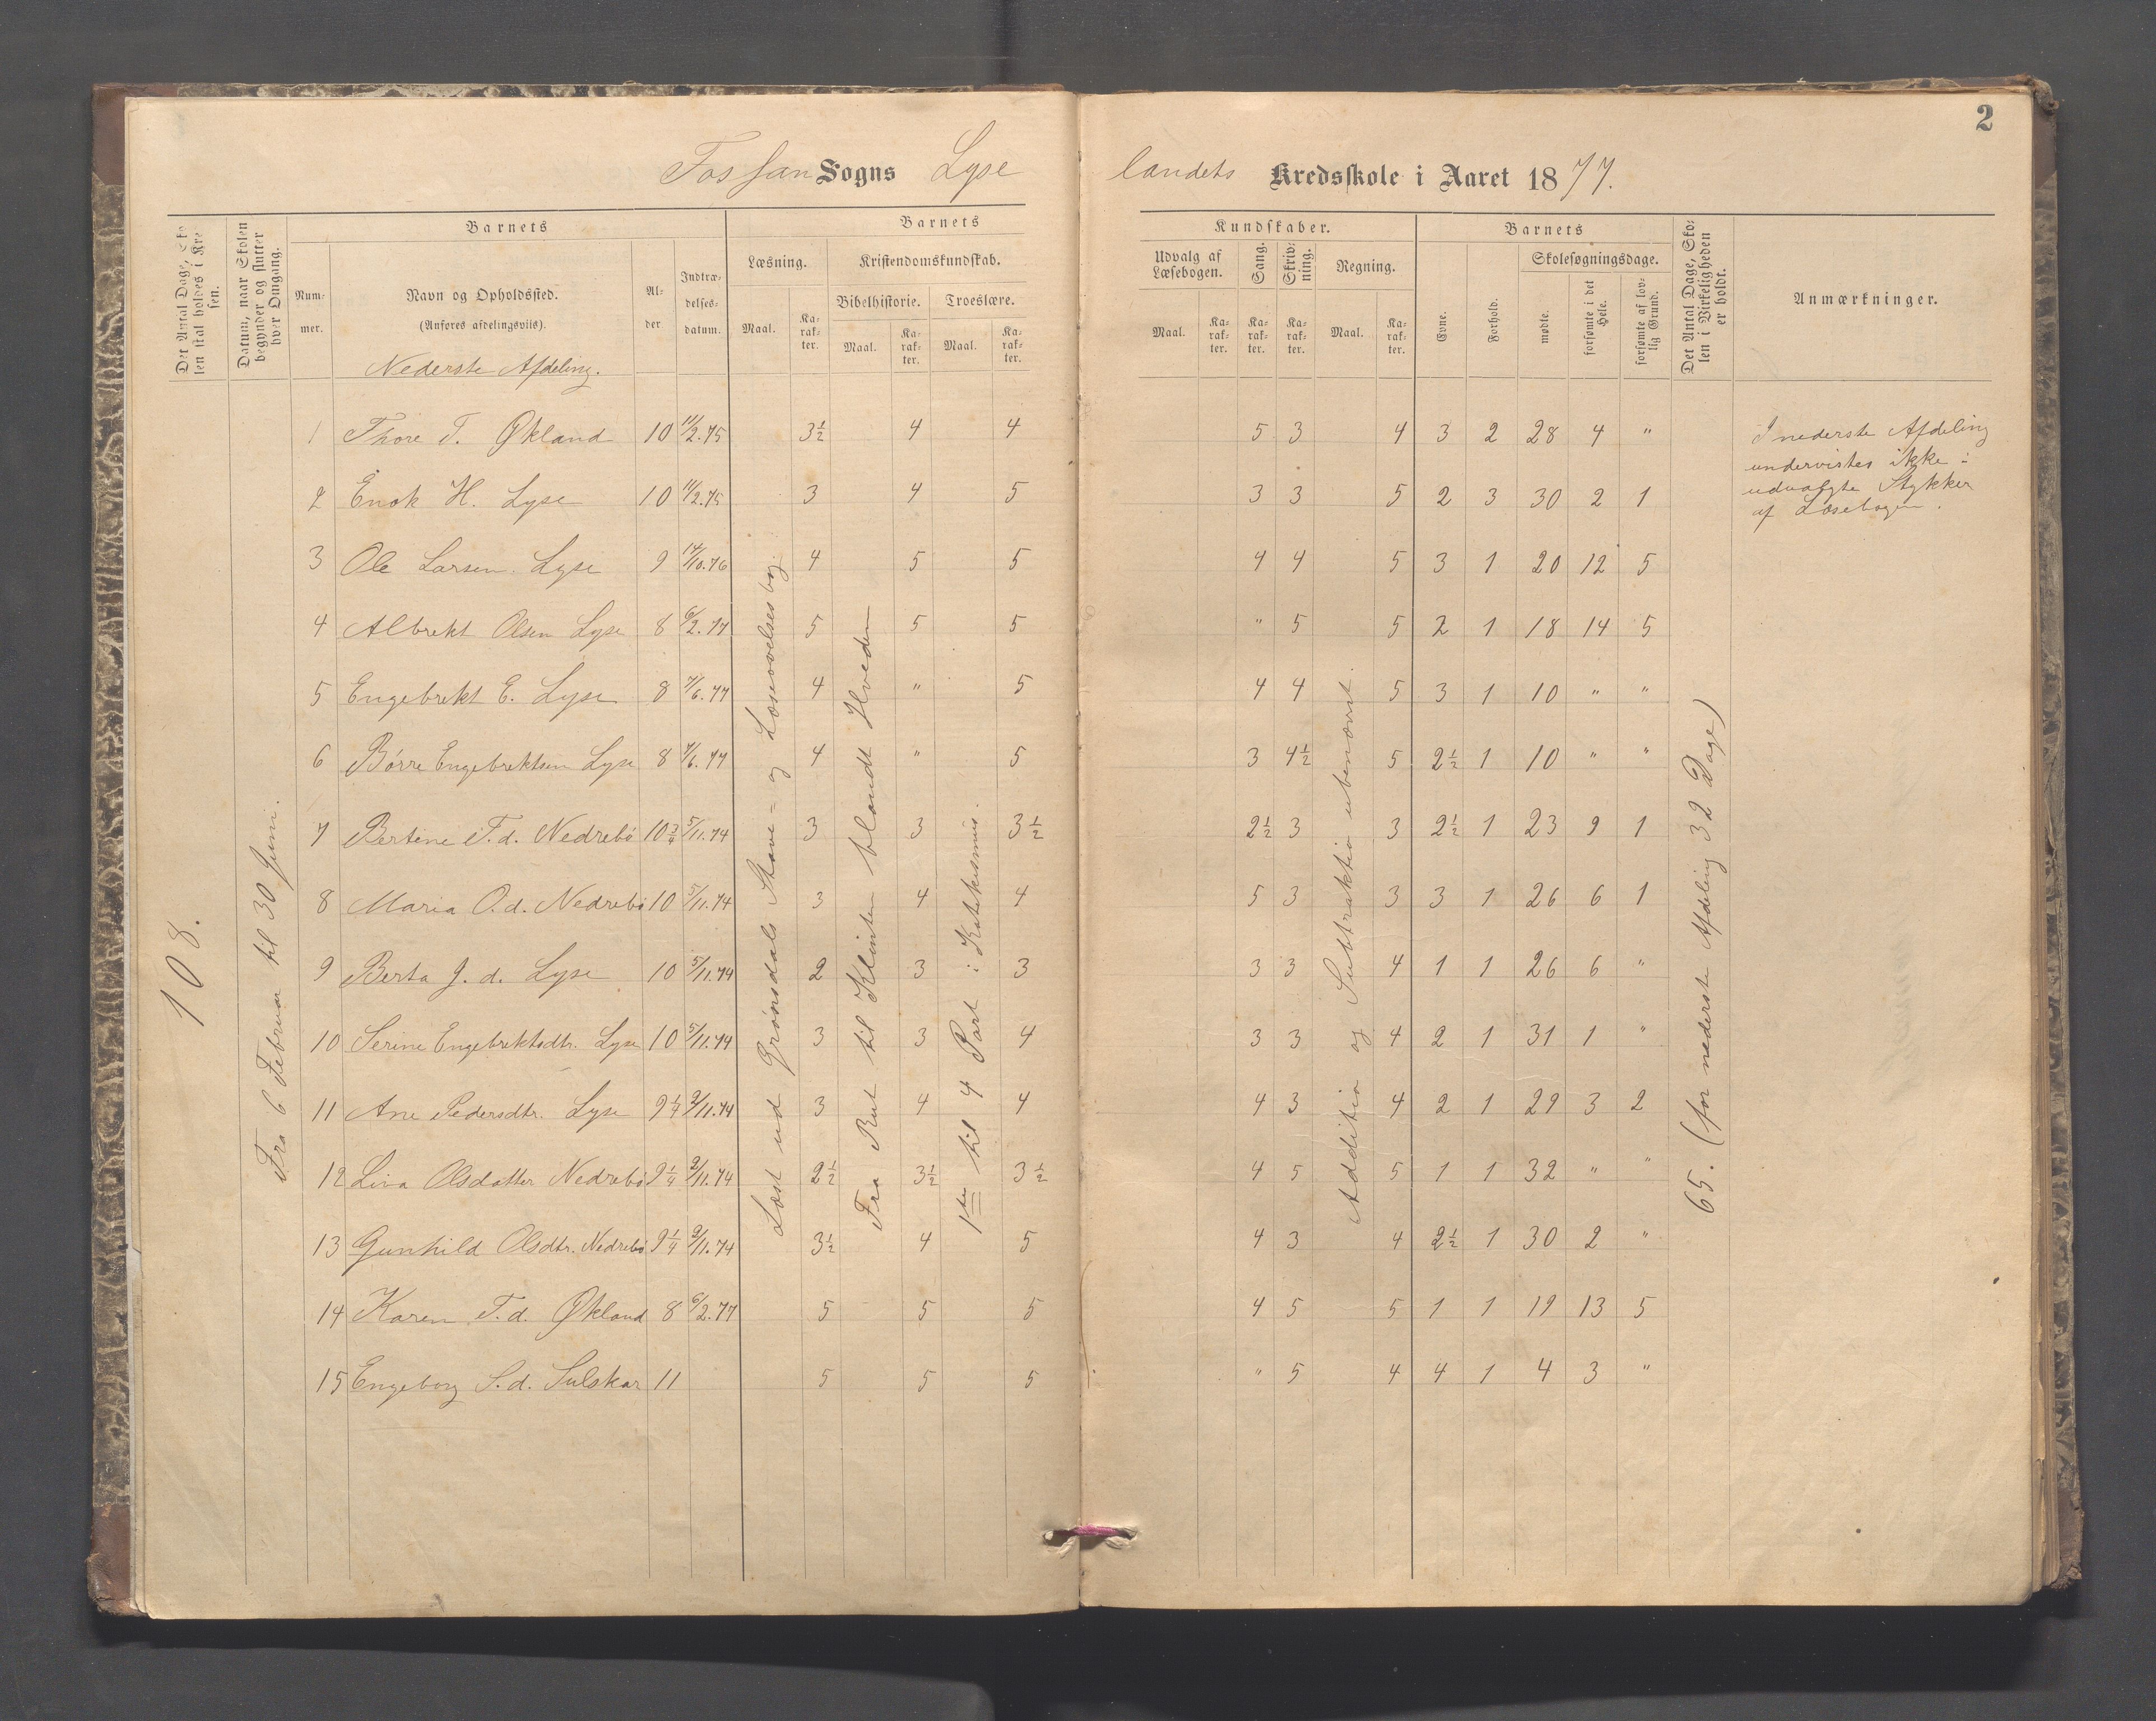 2
Fossan Sogns Lyse landets Kredsskole i Aaret 1877.
Det Antal Dage, Skolen skal holdes i Kredsen.
Datum, naar Skolen begynder og slutter hver Omgang.
Barnets
Nummer.
Navn og Opholdssted.
(Anføres afdelingsviis).
Alder
Indtrædelsesdatum.
Barnets Kundskaber.
Læsning.
Maal. Karakter.
Kristendomskundskab.
Bibelhistorie. Troeslære.
Maal. Karakter. Maal. Karakter.
Udvalg af Læsebogen.
Maal. Karakter.
Sang. Karakter.
Skrivning. Karakter.
Regning.
Maal. Karakter.
Barnets
Evne. Forhold.
Skolesøgningsdage.
mødte. forsømte i det Hele. forsømte af lovlig Grund.
Det Antal Dage, Skolen i Virkeligheden er holdt.
Anmærkninger.
Nederste Afdeling.
1 Thore T. Økland 10 11/2.75 3½ 4 4 5 3 4 3 2 28 4 "
2 Enok H. Lyse 10 11/2.75 3 4 5 3 3 5 2 3 30 2 1
3 Ole Larsen Lyse 9 14/10.76 4 5 5 4 4 5 3 1 20 12 5
4 Albrekt Olsen Lyse 8 6/2.77 5 5 5 " 5 5 2 1 18 14 5
5 Engebrekt E. Lyse 8 7/6.77 4 " 5 4 4 5 3 1 10 " "
6 Börre Engebrektsen Lyse 8 7/6.77 4 " 5 3 4½ 5 2½ 1 10 " "
7 Bertine T. d. Nedrebö 10¾ 5/11.74 3 3 3½ 2½ 3 3 2½ 1 23 9 1
8 Maria O. d. Nedrebö 10 5/11.74 3 4 4 5 3 3 3 1 26 6 1
9 Berta J. d. Lyse 10 5/11.74 2 3 3 3 3 4 1 1 26 6 "
10 Serine Engebrektsdtr. Lyse 10 5/11.74 3 3 4 3 3 4 2 1 31 1 "
11 Ane Pedersdtr. Lyse 9¼ 2/11.74 3 4 4 4 3 4 2 1 29 3 2
12 Lina Olsdatter Nedrebö 9¼ 2/11.74 2½ 3½ 3½ 4 5 5 1 1 32 " "
13 Gunhild Olsdtr. Nedrebö 9¼ 2/11.74 3½ 4 5 4 3 4 2½ 1 30 2 "
14 Karen T. d. Økland 8 6/2.77 5 5 5 4 5 5 1 1 19 13 5
15 Engeborg S. d. Sulskar 11 5 5 5 " 5 4 4 1 4 3 "
108.
Fra 6 Februar til 30 Juni.
Læst ud Grönsdals Stave- og Læseøvelsesbog.
Fra Rut til Klinten blandt Hveden
1ste til 4 Part i Katekismus.
Additio og Subtraktio ubenævnt.
65. (for nederste Afdeling 32 Dage)
I nederste Afdeling
undervistes ikke i
udvalgte Stykker
af Læsebogen.